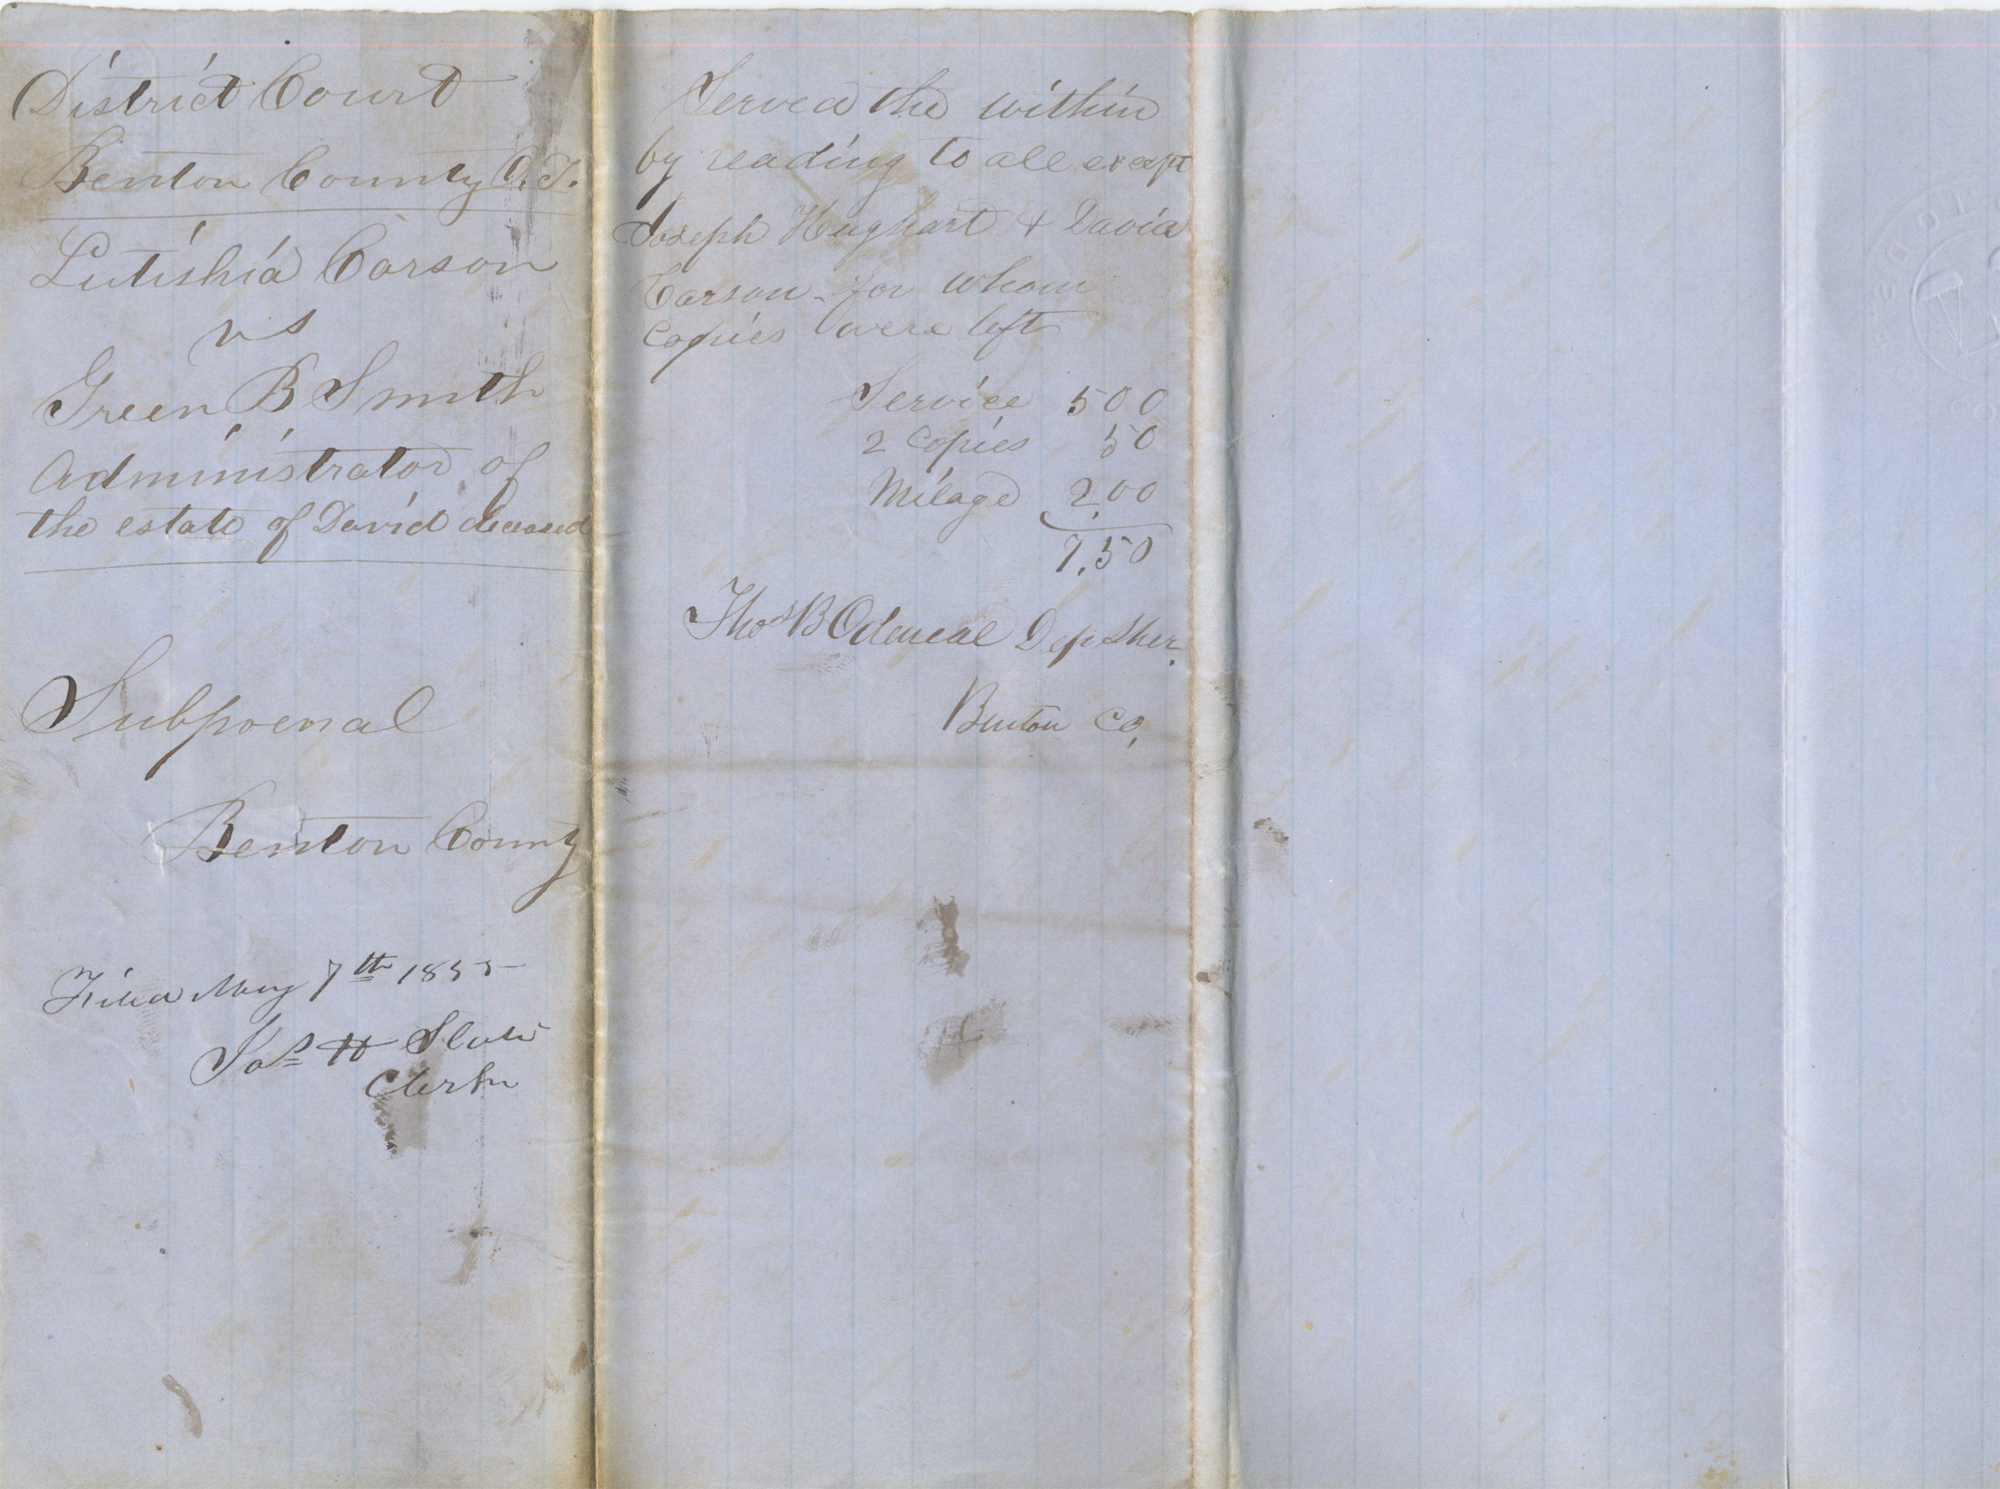 District Court
Benton County O.T.
Lutishia Carson
vs
Green B Smith
Administrator of
the estate of David deceased
Subpoenal
Benton County
Filed May 7th 1855
Jas H Slater
Clerk
Served the within
by reading to all except
Joseph Hughart & David
Carson - for whom
Copies were left
Service 500
2 Copies 50
Milage 2.00
7.50
Thos B Odeneal Dep Sher.
Benton Co,